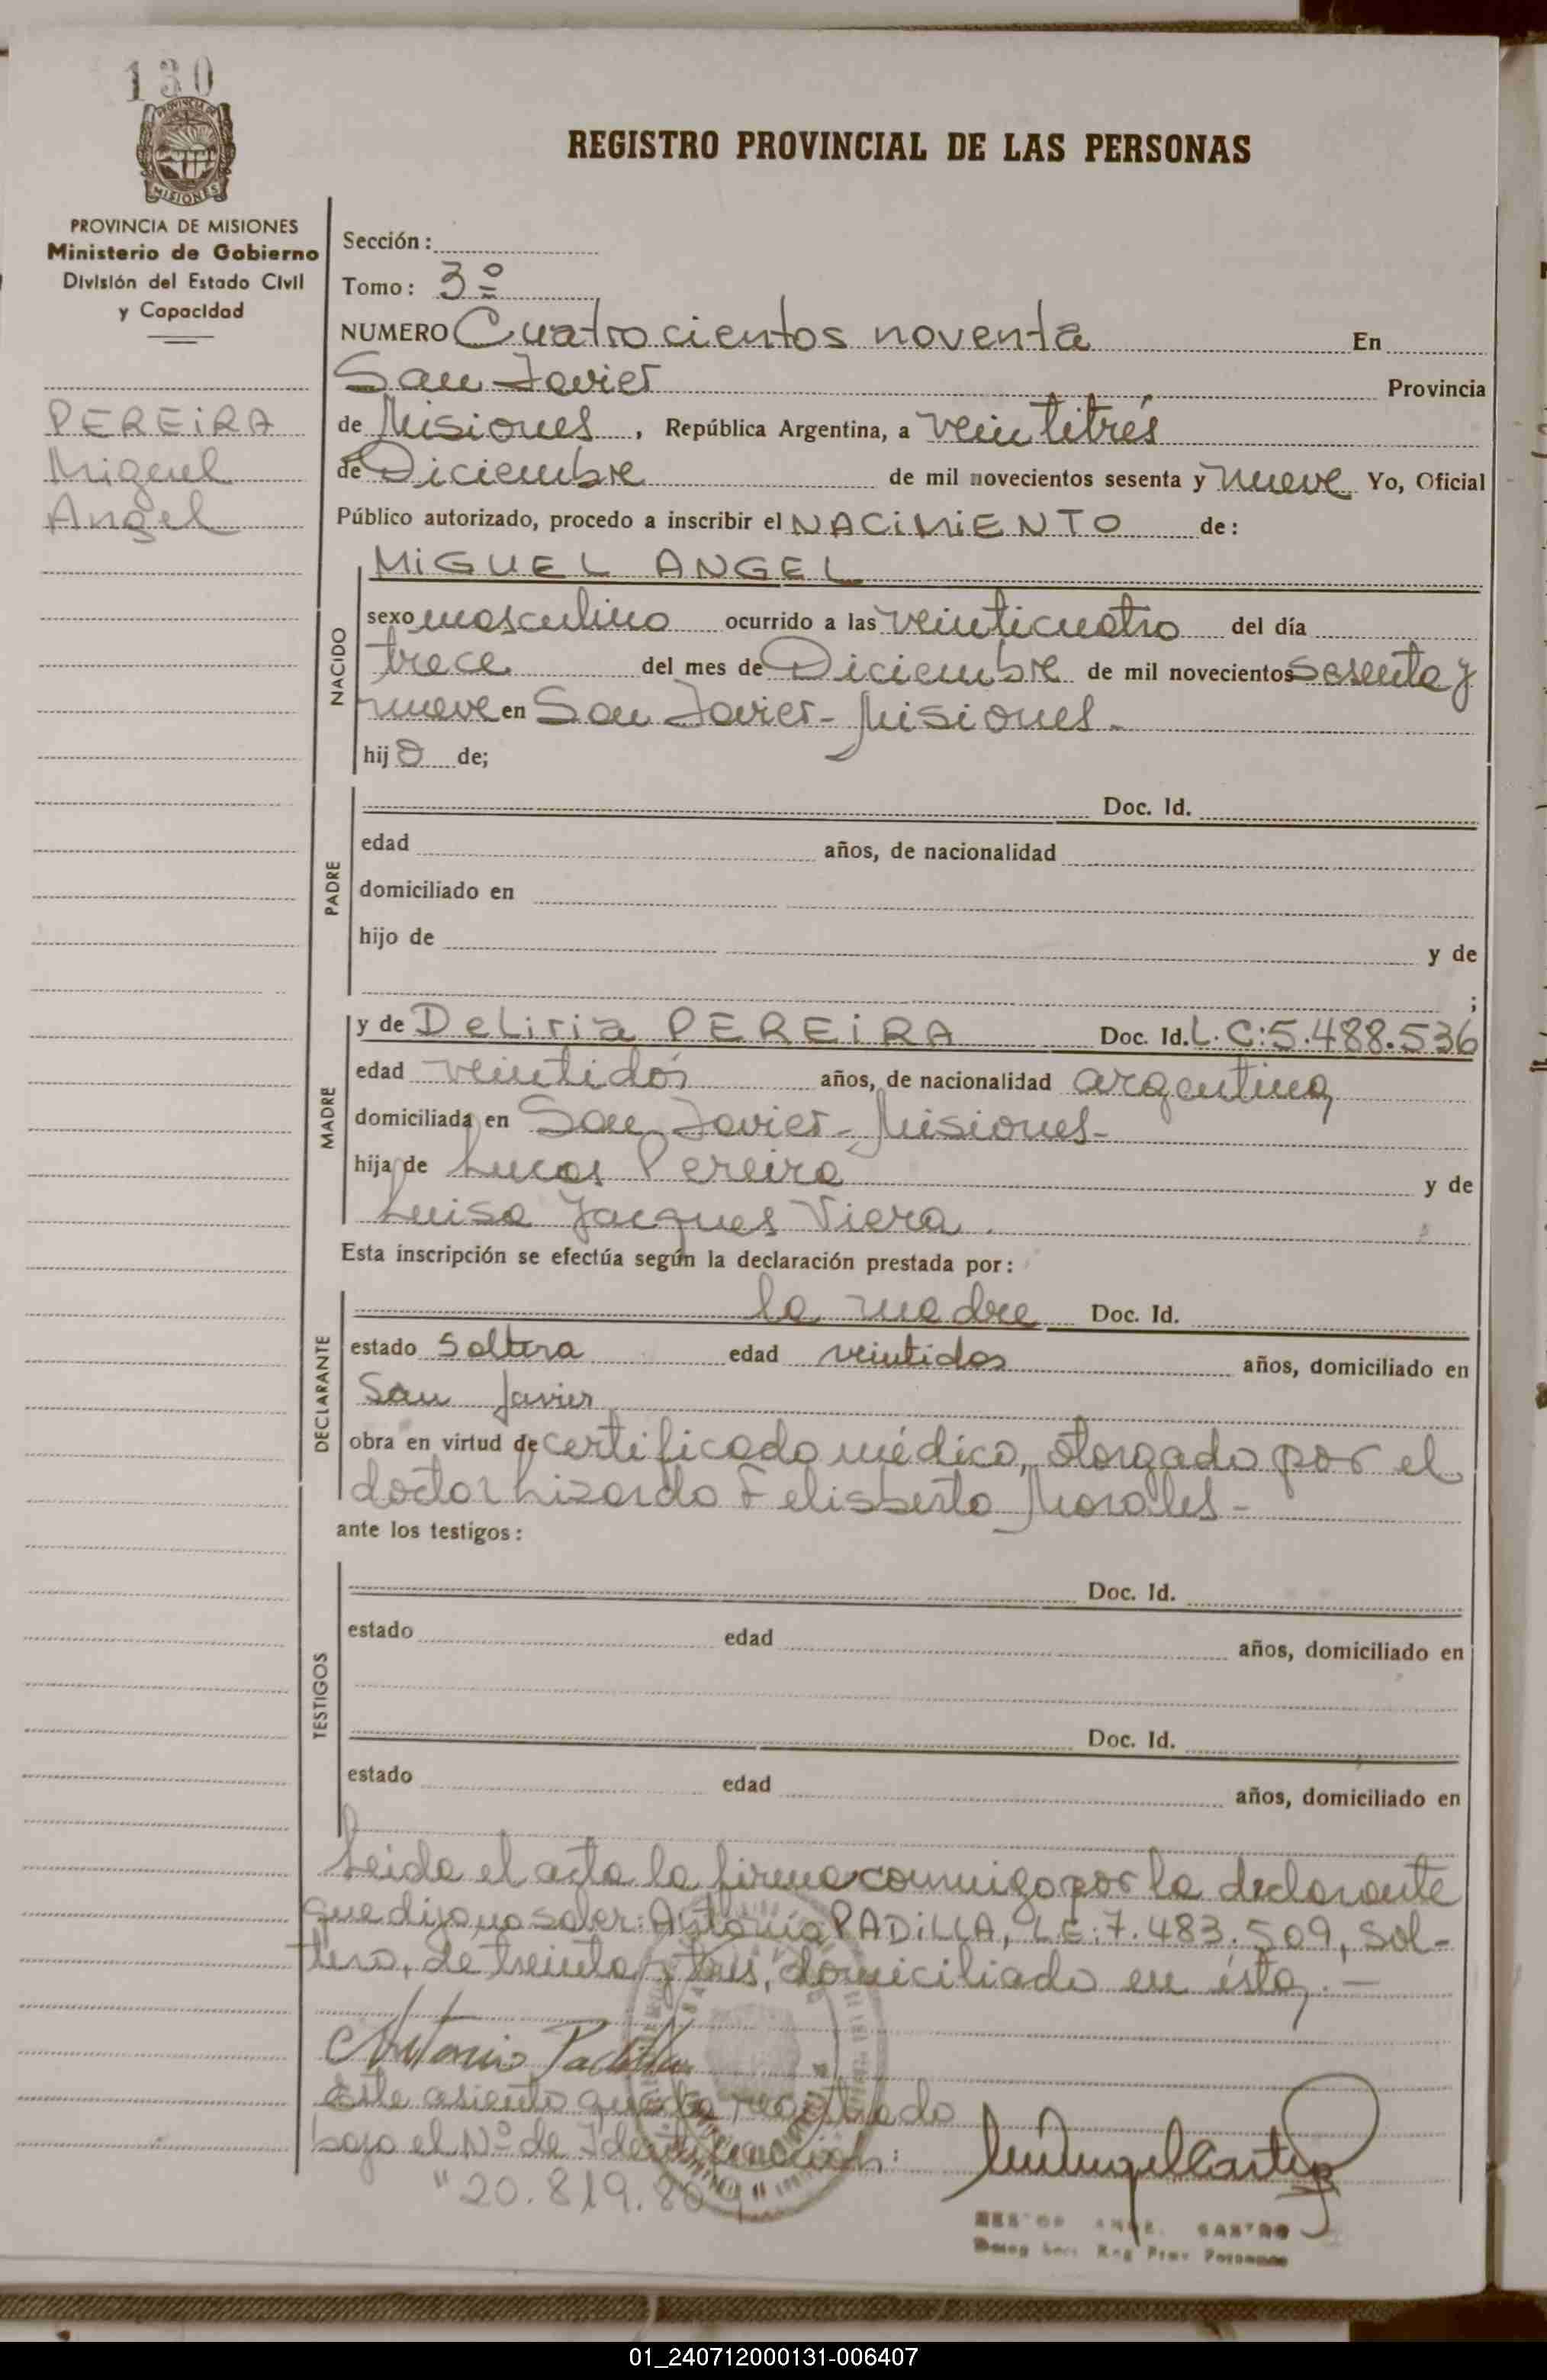 130
PROVINCIA DE MISIONES
Ministerio de Gobierno
División del Estado Civil
y Capacidad
PEREiRA
Miguel
Angel
REGISTRO PROVINCIAL DE LAS PERSONAS
Sección:
Tomo: 3º
NUMERO Cuatrocientos noventa En
San Javier Provincia
de Misiones, República Argentina, a veintitrés
de Diciembre de mil novecientos sesenta y nueve Yo, Oficial
Público autorizado, procedo a inscribir el NACiMiENTO de:
NACIDO
MiGUEL ANGEL
sexo masculino ocurrido a las veinticuatro del día
trece del mes de Diciembre de mil novecientos sesenta y
nueve en San Javier - Misiones -
hijo de;
PADRE
Doc. Id.
edad años, de nacionalidad
domiciliado en
hijo de y de
;
MADRE
y de Deliria PEREiRA Doc. Id. L.C: 5.488.536
edad veintidós años, de nacionalidad argentina,
domiciliada en San Javier - Misiones -
hija de Lucas Pereira y de
Luisa Jacques Viera.
Esta inscripción se efectúa según la declaración prestada por:
DECLARANTE
la madre Doc. Id.
estado soltera edad veintidos años, domiciliado en
San Javier
obra en virtud de certificado médico, otorgado por el
doctor Lizardo Felisberto Morales -
ante los testigos:
TESTIGOS
Doc. Id.
estado edad años, domiciliado en
Doc. Id.
estado edad años, domiciliado en
Leida el acta la firma conmigo por la declarante
que dijo no saber: Antonio PADiLLA, LE: 7.483.509, sol-
tero, de treinta y tres, domiciliado en ésta, . —
Antonio Padilla
Este asiento queda registrado
bajo el Nº de Identificación:
"20.819.809"
ANGEL CASTRO
Reg Prov Personas
01_240712000131-006407